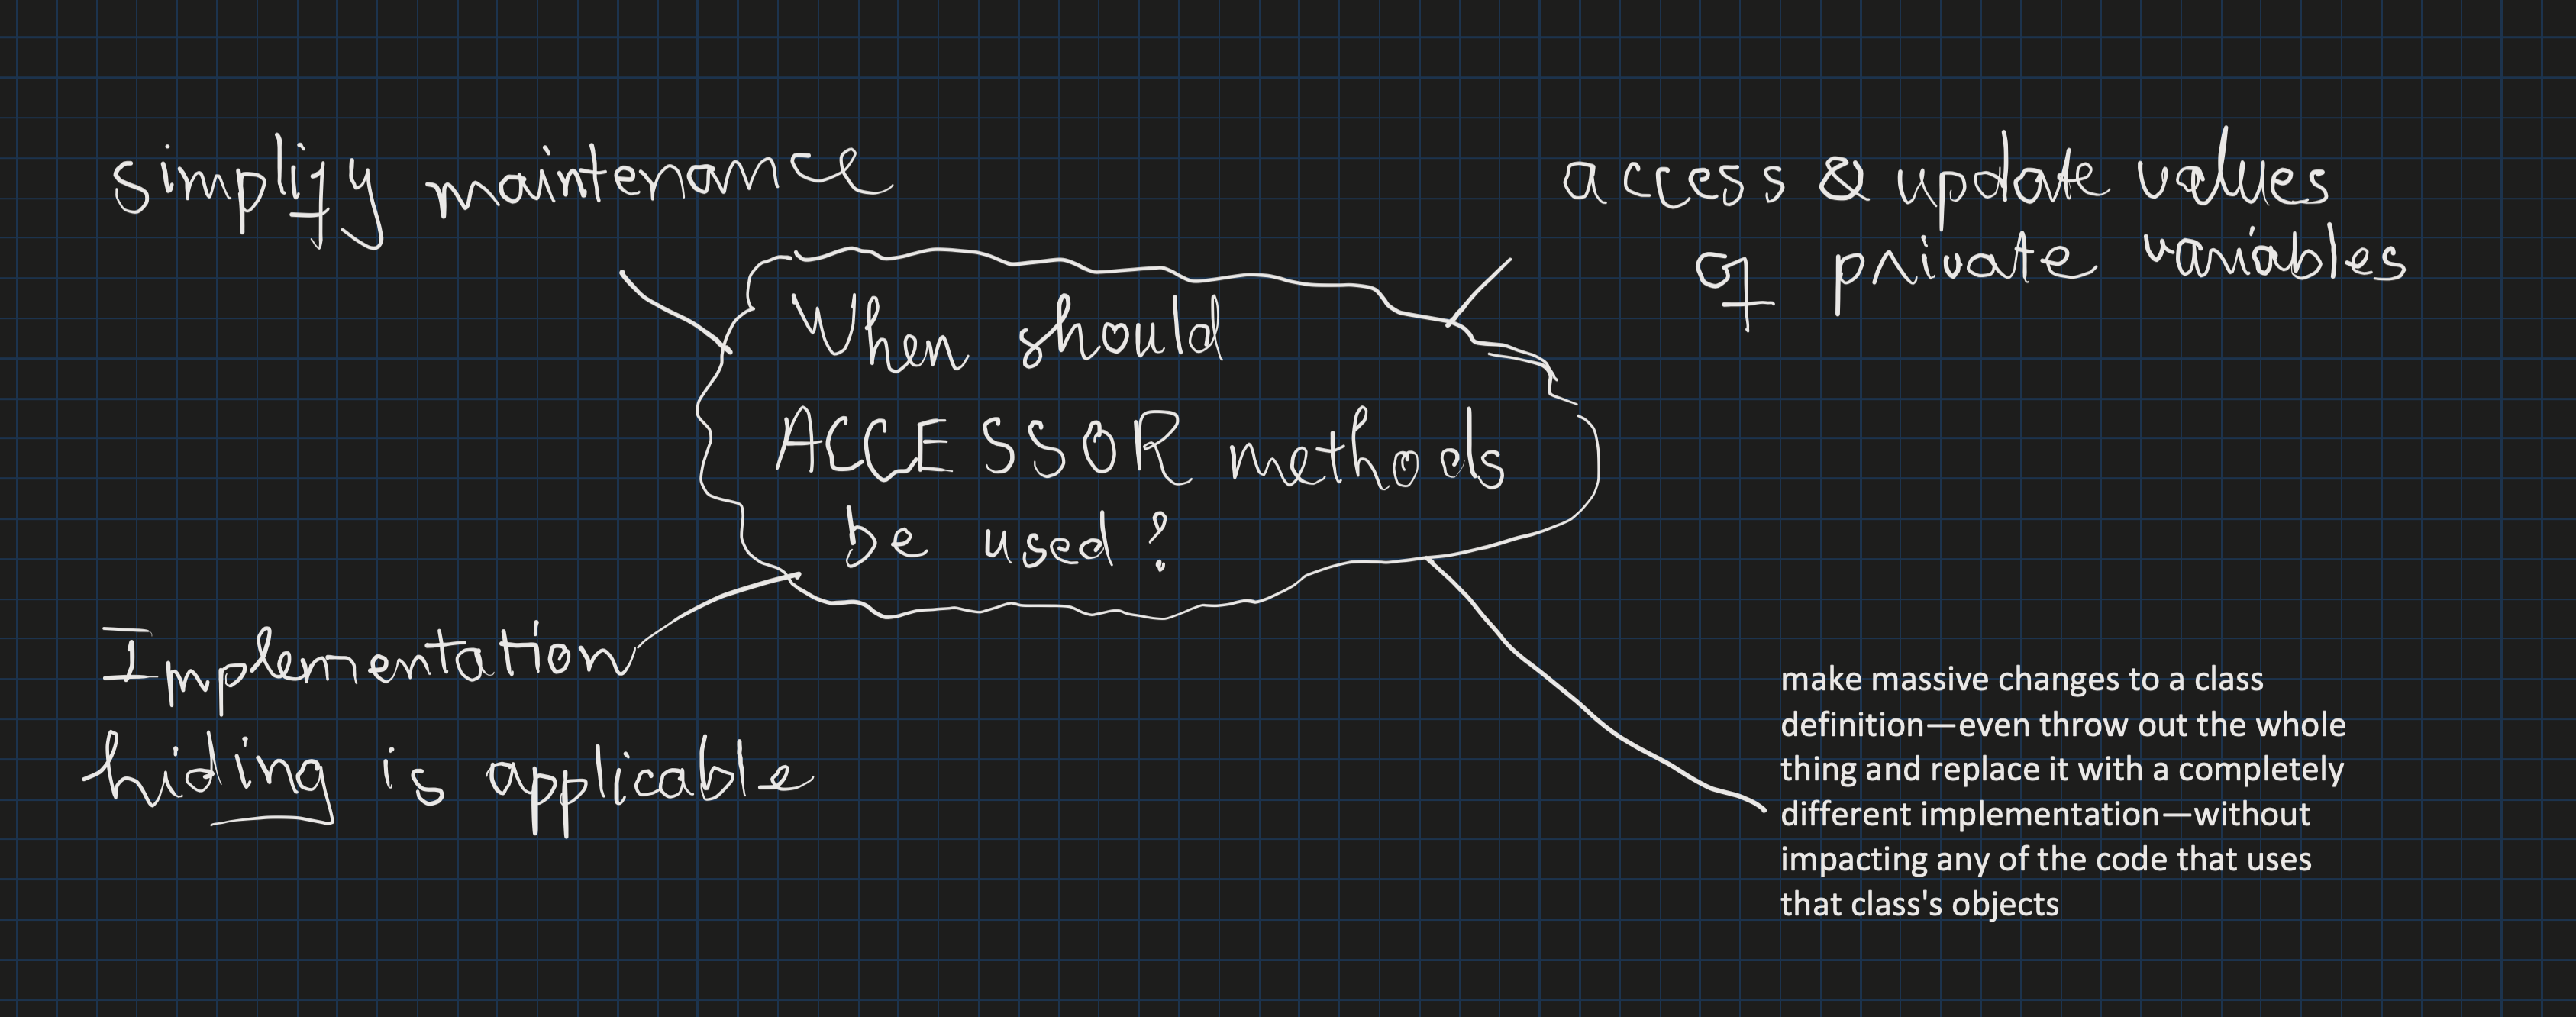 simplify maintenance
access & update values
of private variables
When should
ACCESSOR methods
be used?
Implementation
hiding is applicable
make massive changes to a class
definition—even throw out the whole
thing and replace it with a completely
different implementation—without
impacting any of the code that uses
that class's objects